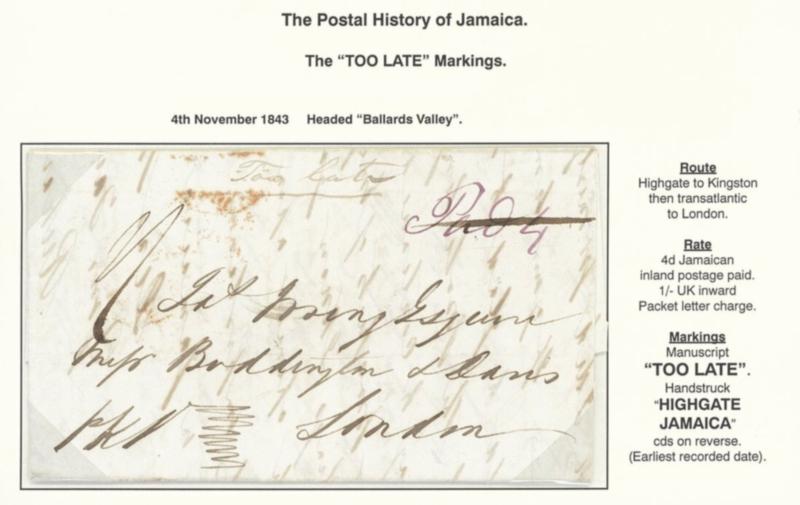 The Postal History of Jamaica.
The “TOO LATE” Markings.
4th November 1843 Headed “Ballards Valley”.
Too Late
Paid 4
Esquire
Messrs Boddington & Davis
London
Route
Highgate to Kingston
then transatlantic
to London.
Rate
4d Jamaican
inland postage paid.
1/- UK inward
Packet letter charge.
Markings
Manuscript
“TOO LATE”.
Handstruck
“HIGHGATE
JAMAICA”
cds on reverse.
(Earliest recorded date).